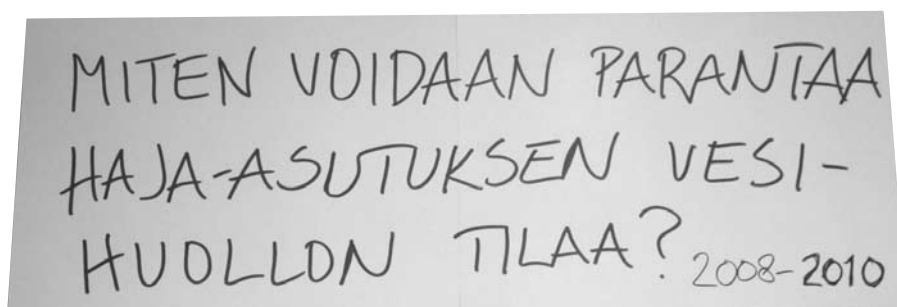 MITEN VOIDAAN PARANTAA
HAJA-ASUTUKSEN VESI-
HUOLLON TILAA? 2008-2010